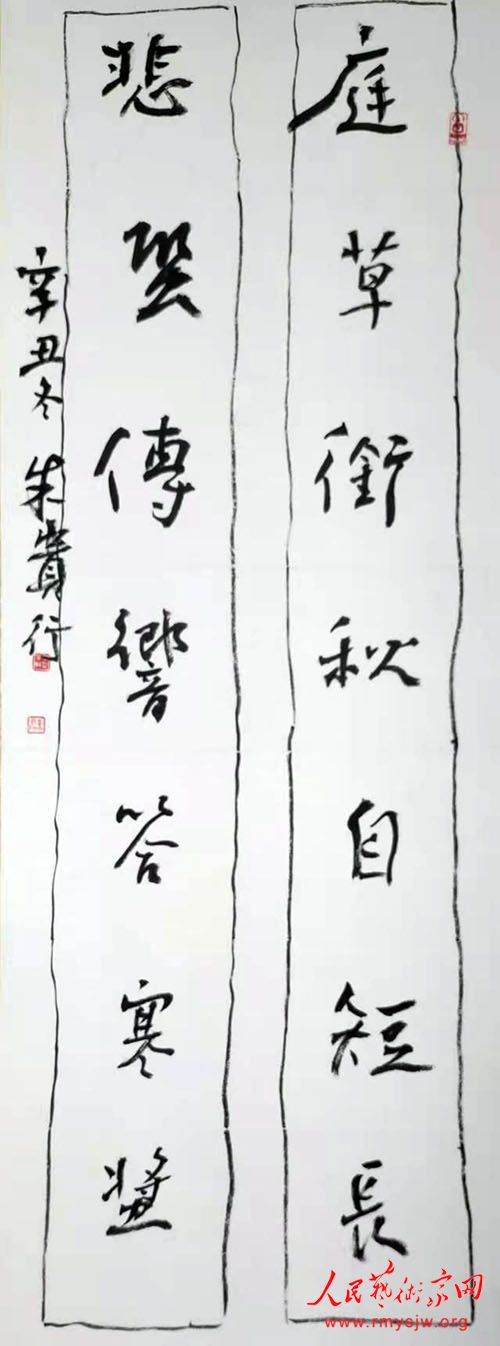 庭草銜秋自短長
悲蛩傳響答寒螿
辛丑冬 朱行
人民藝術家网
www.rmysjw.org